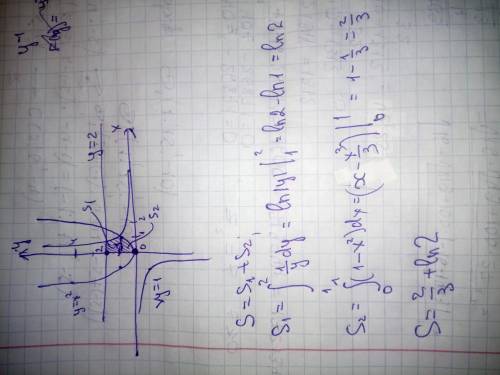 y=1
y=2
x
y
S₁
S₂
2
1
0
1
2
4
y=x²
xy=1
S=S₁+S₂;
S₁=∫₁² 1/y dy = ln|y| |₁² = ln2-ln1 = ln2
S₂=∫₀¹(1-x²)dx=(x-x³/3)|₀¹ = 1-1/3=2/3
S=2/3+ln2